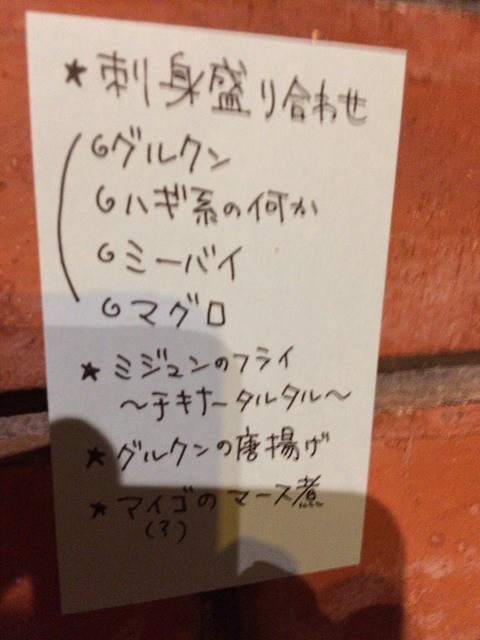 ★刺身盛り合わせ
グルクン
ハギ系の何か
ミーバイ
マグロ
★ミジュンのフライ
〜チキナータルタル〜
★グルクンの唐揚げ
★マイゴのマース煮
(?)